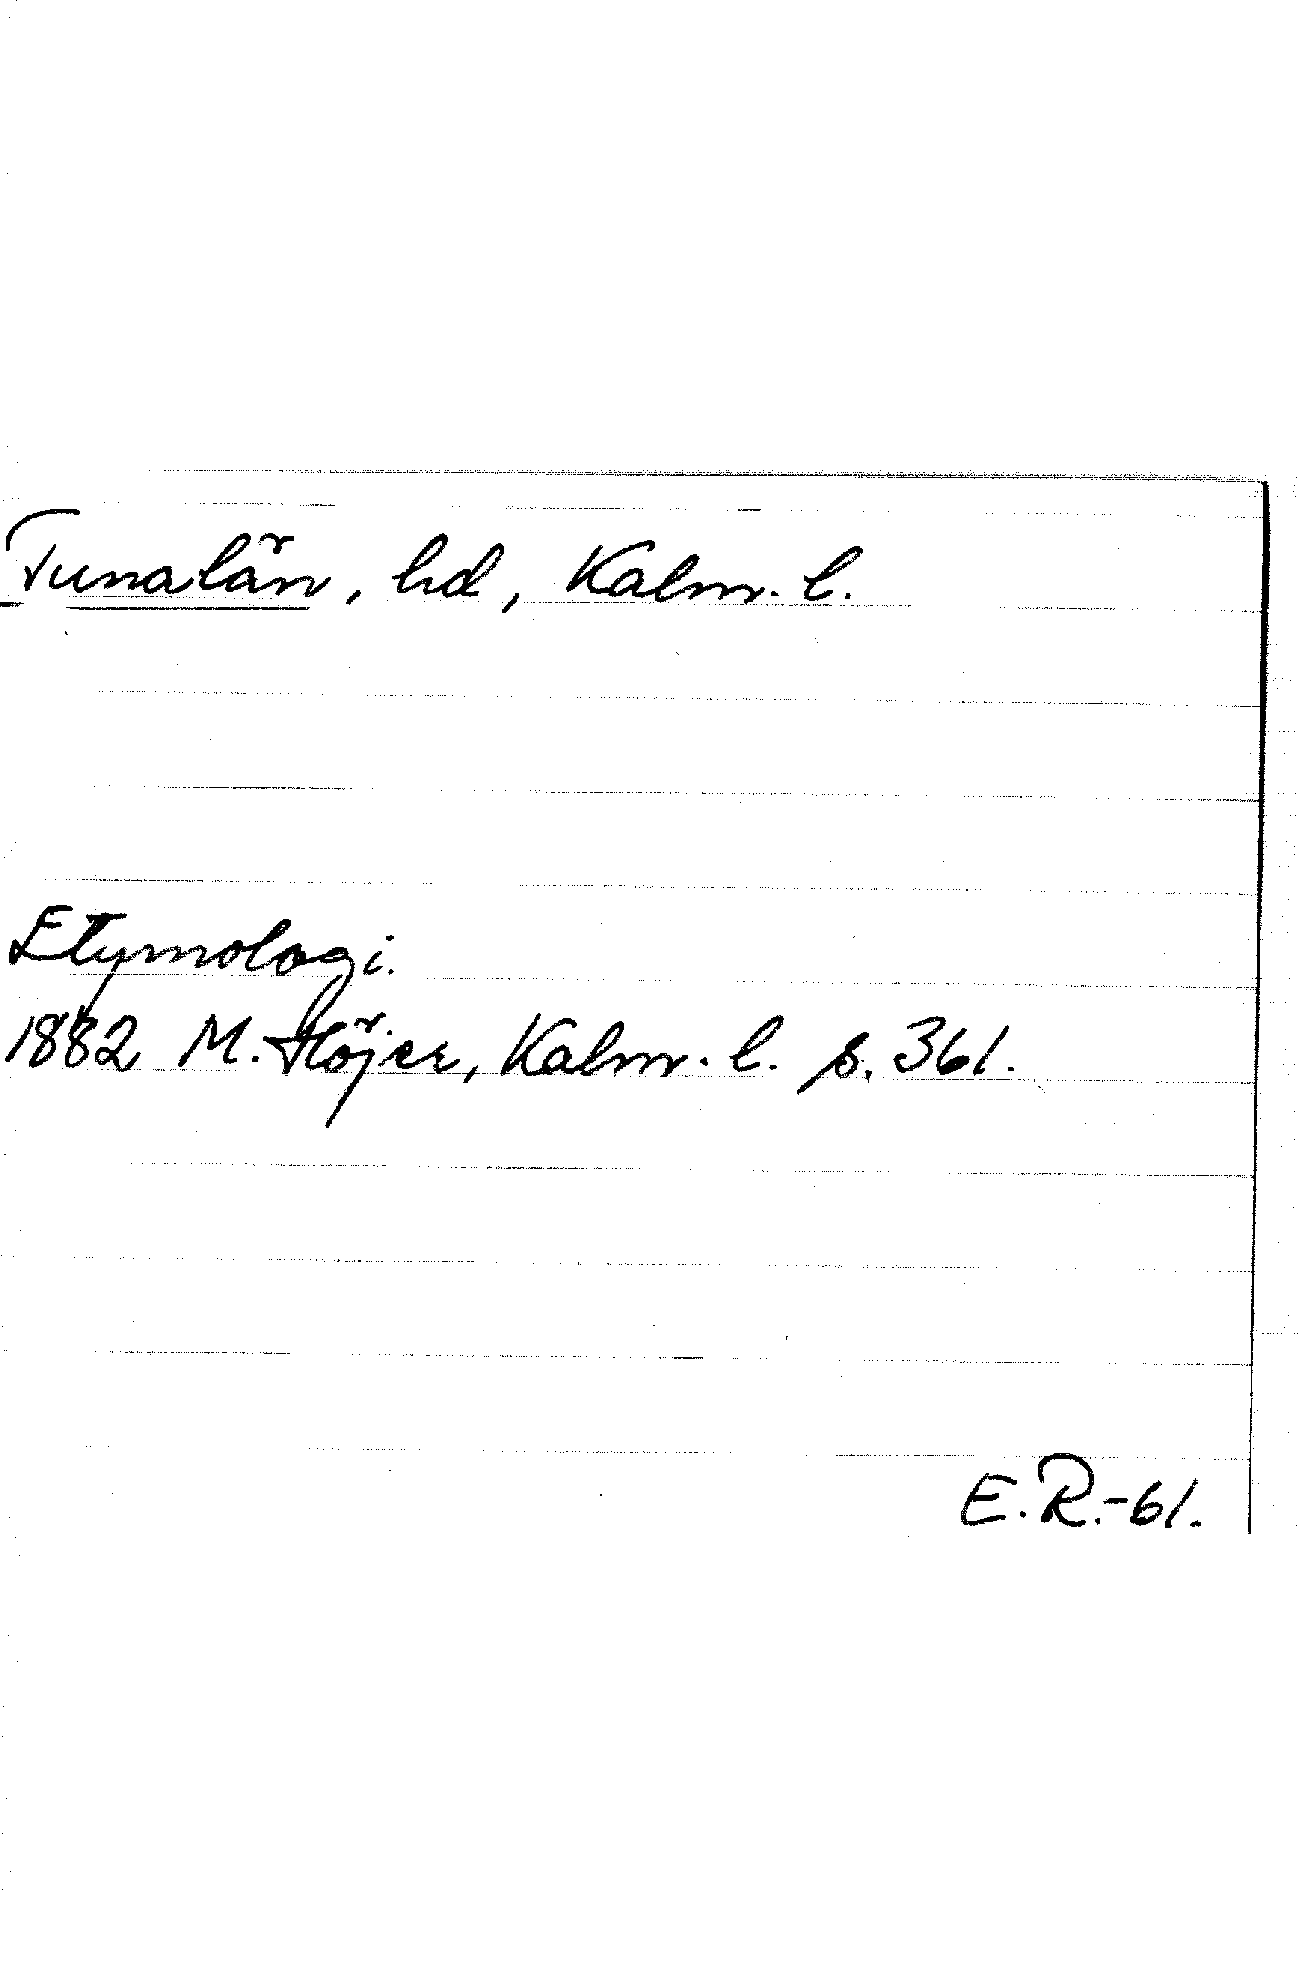 Tunalän, hd, Kalm. l.
Etymologi.
1882 M. Höjer, Kalm. l. s. 361.
E.R.-61.